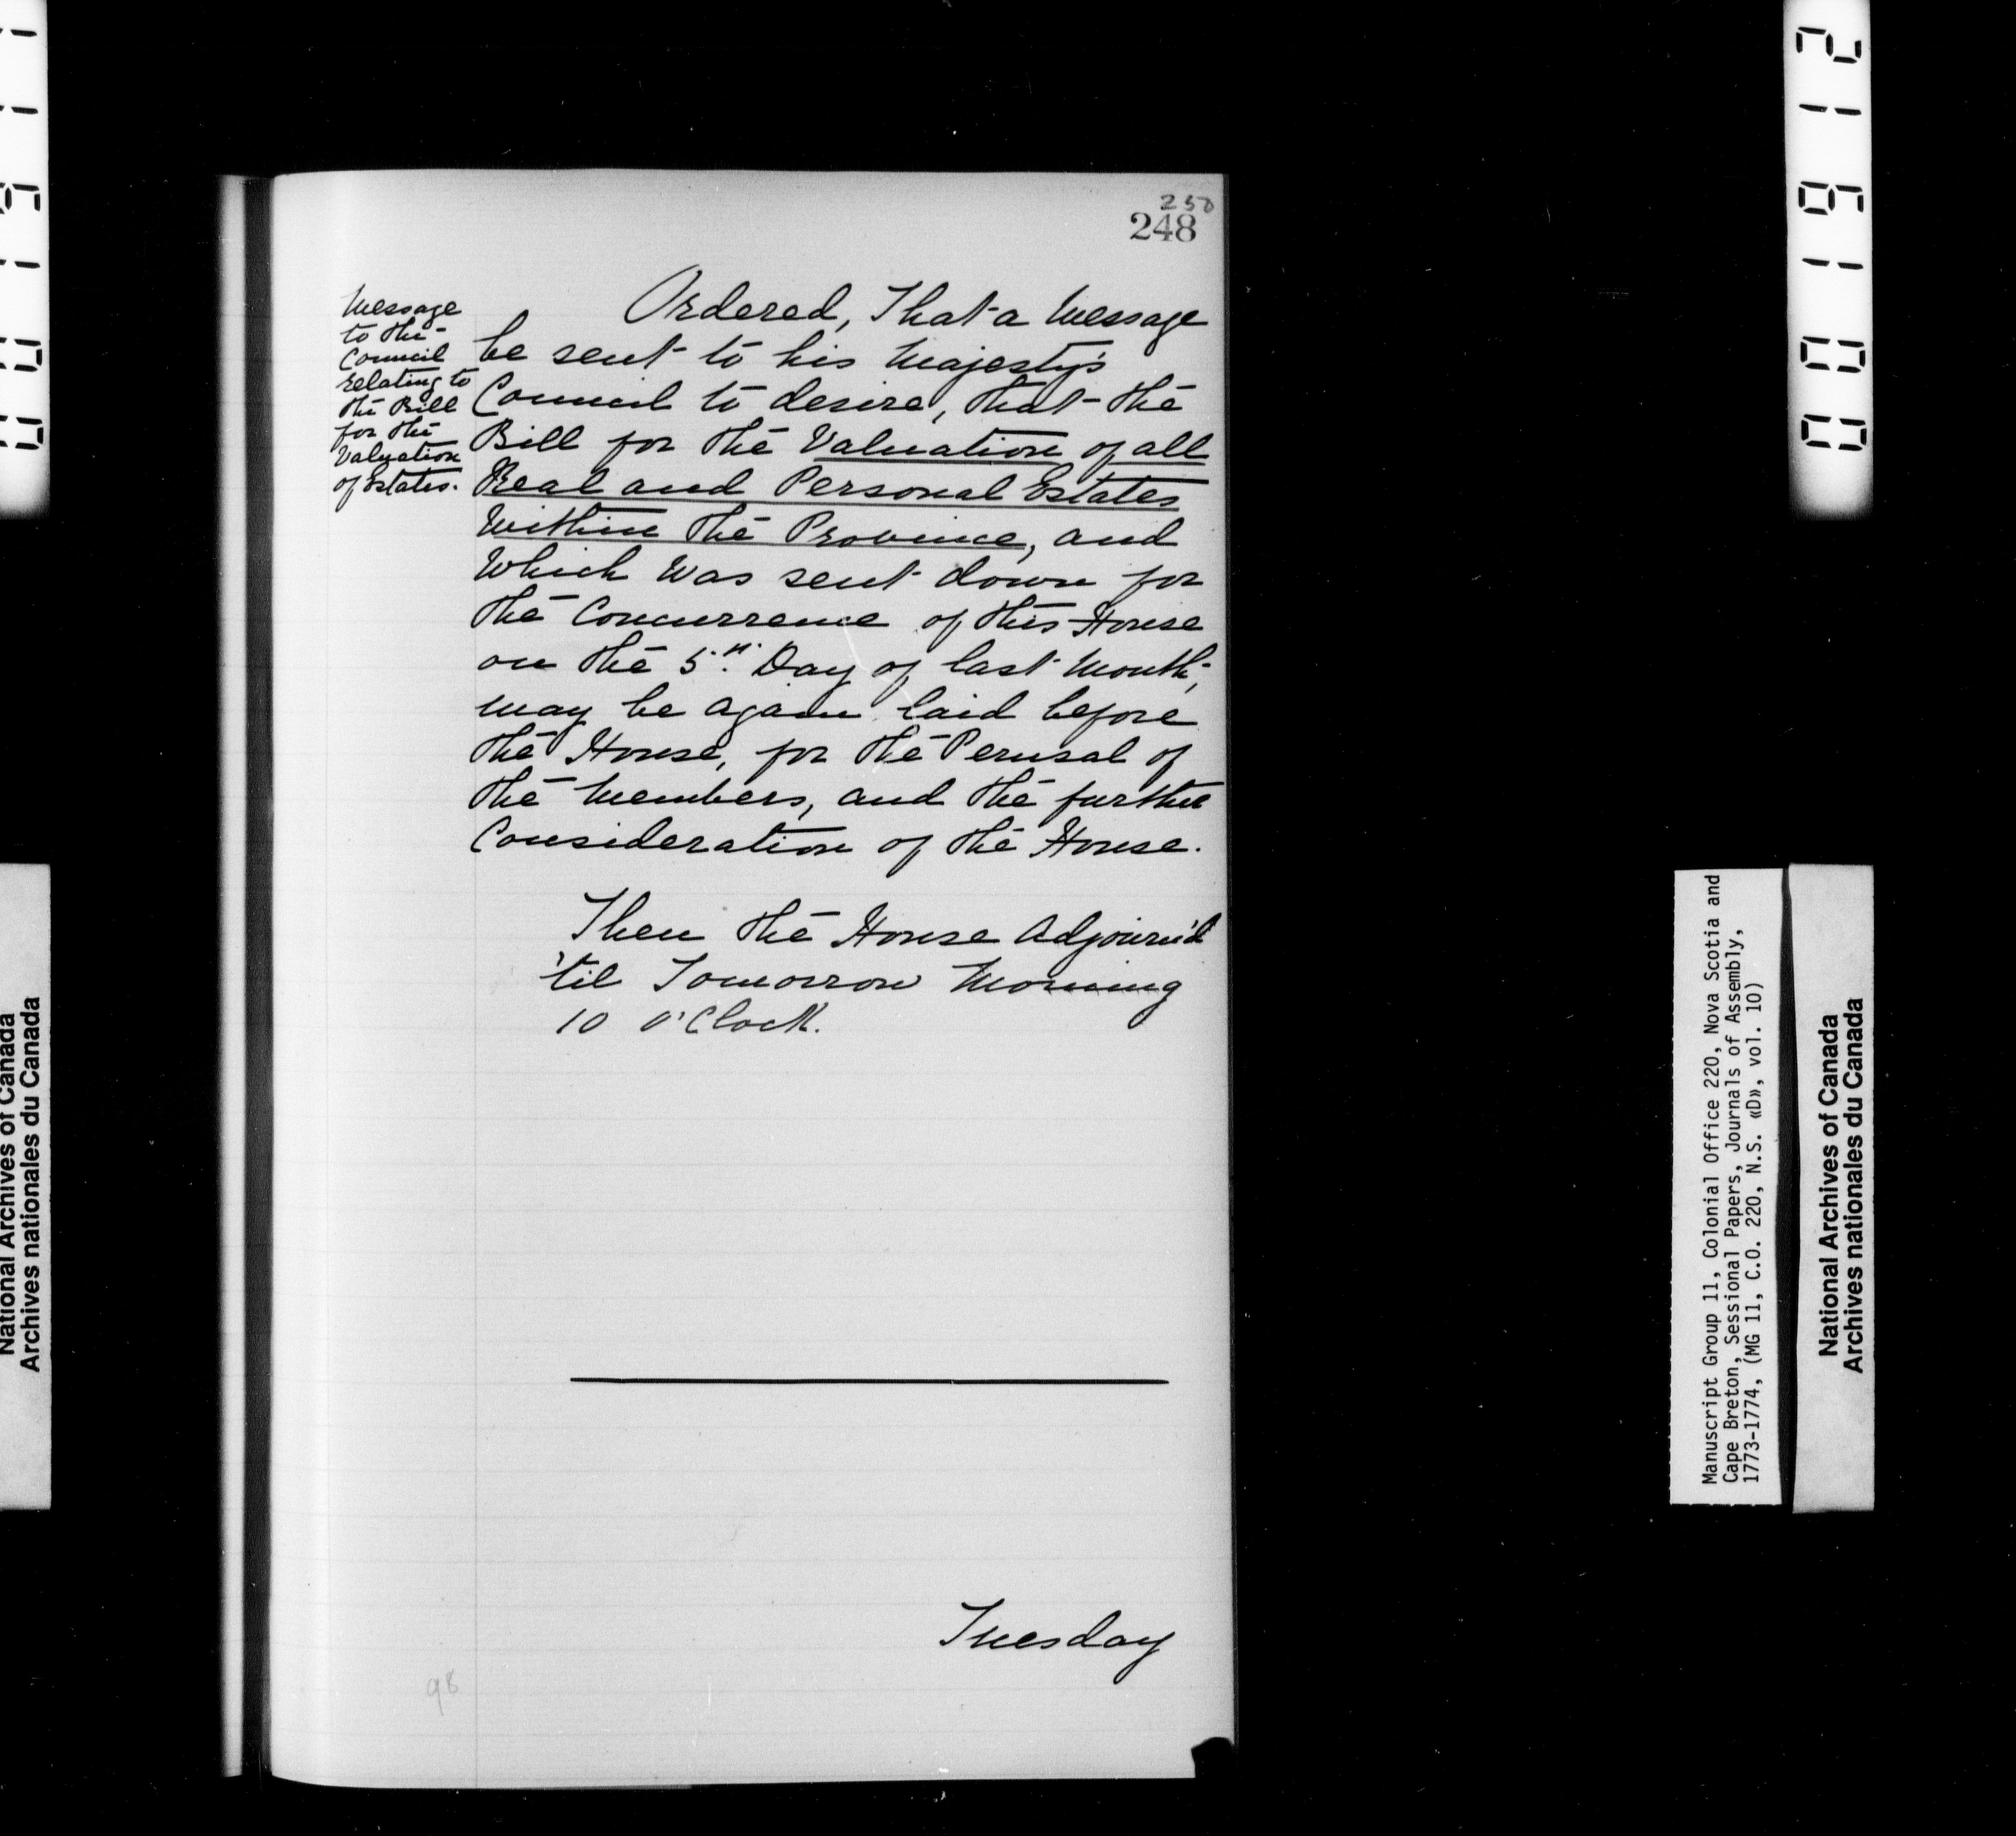 250
248
Message
to the
Council
relating to
the Bill
for the
Valuation
of Estates.
Ordered, That a Message
be sent to his Majesty's
Council to desire, that the
Bill for the Valuation of all
Real and Personal Estates
Within the Province, and
Which Was sent down for
the Concurrence of this House
on the 5th Day of last Month,
may be again laid before
the House, for the Perusal of
the Members, and the further
Consideration of the House.
Then the House Adjourn'd
'til Tomorrow Morning
10 O'Clock.
Tuesday
98
National Archives of Canada
Archives nationales du Canada
Manuscript Group 11, Colonial Office 220, Nova Scotia and
Cape Breton, Sessional Papers, Journals of Assembly,
1773-1774, (MG 11, C.O. 220, N.S. «D», vol. 10)
National Archives of Canada
Archives nationales du Canada